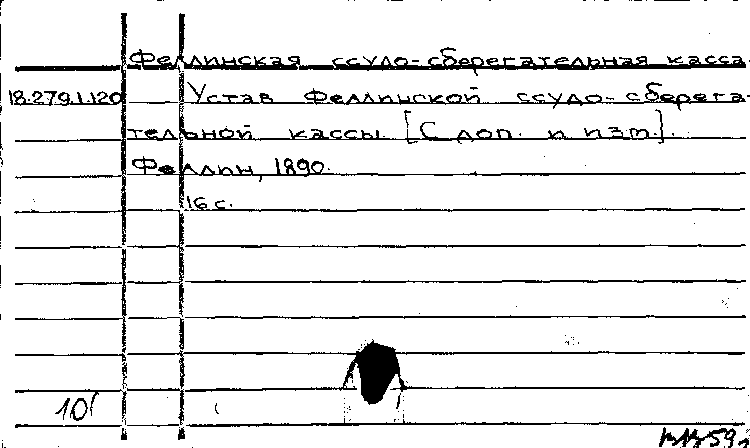 Феллинская ссудо-сберегательная касса.
18.279.1.120 Устав Феллинской ссудо-сберега-
тельной кассы. [С доп. и изм.].
Феллин, 1890.
16 с.
10